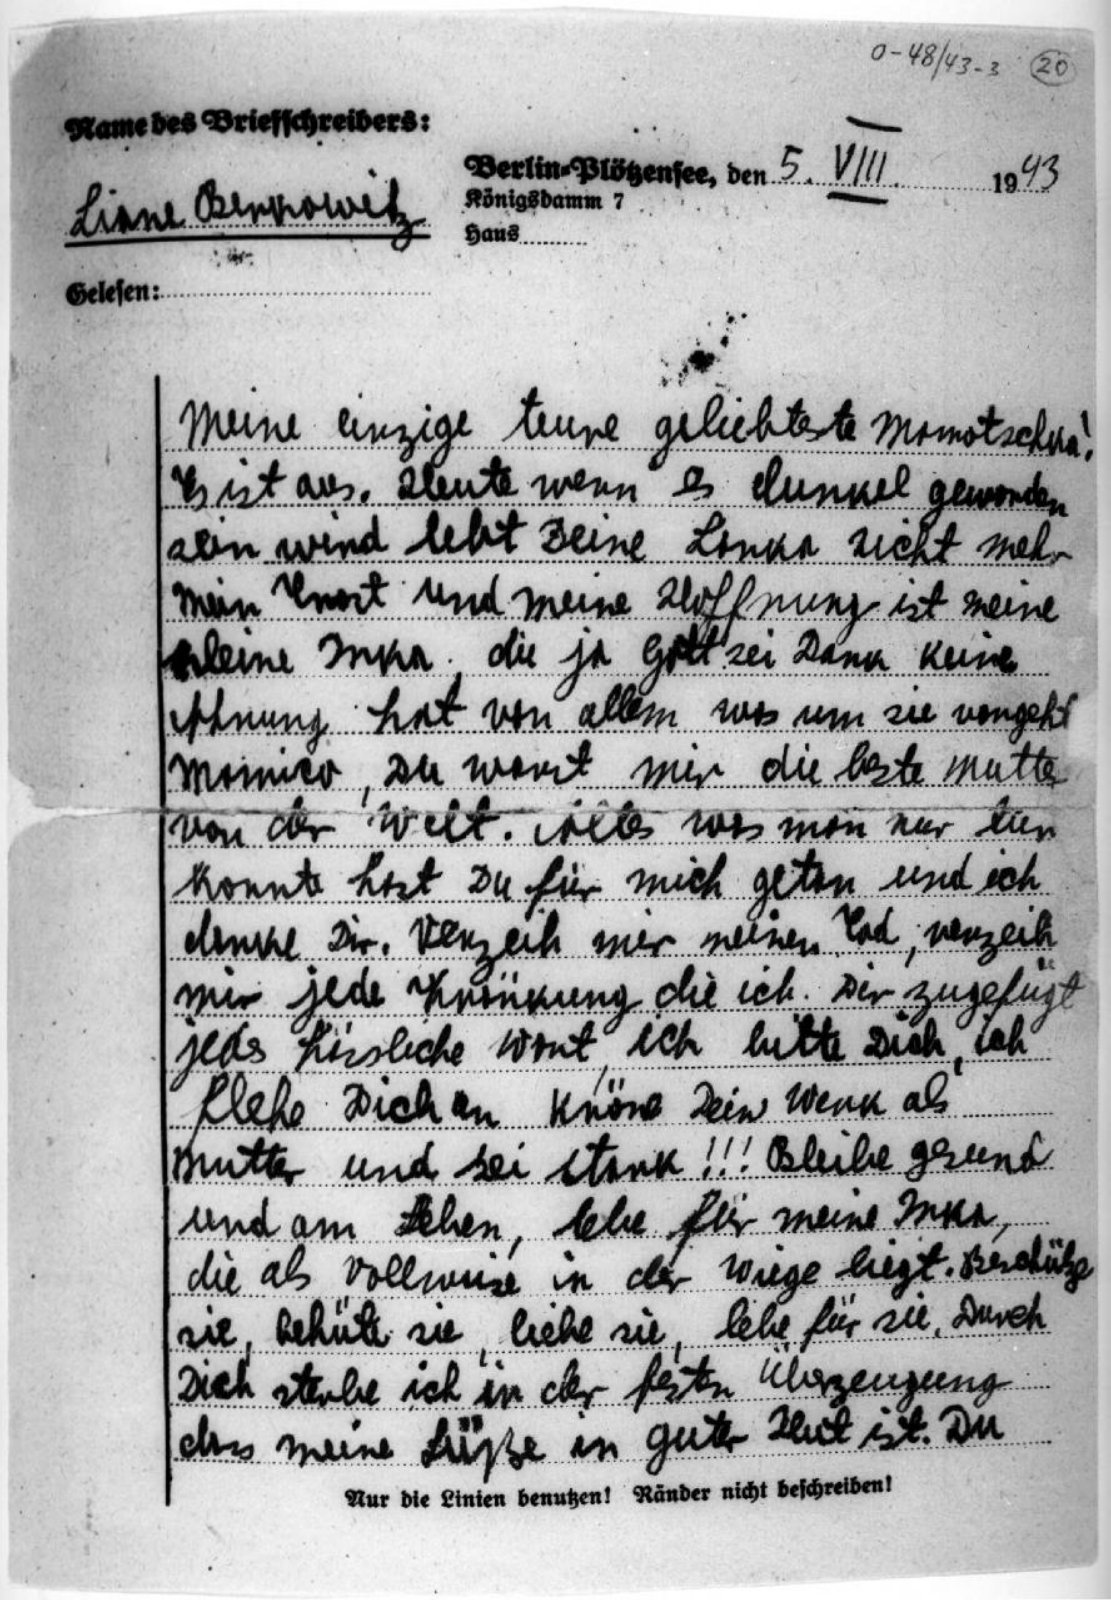 0-48/43-3 20
Name des Briefschreibers:
Berlin-Plötzensee, den 5. VIII. 1943
Königsdamm 7
Liane Berkowitz
Haus
Gelesen:
Meine einzige teure geliebteste Mamotschka!
Es ist aus. Heute wenn es dunkel geworden
sein wird lebt Deine Lanka nicht mehr
Mein Trost und meine Hoffnung ist meine
kleine Inka, die ja Gott sei Dank keine
Ahnung hat von allem was um sie vorgeht
Du warst mir die beste Mutter
von der Welt. Alles was man nur tun
konnte hast Du für mich getan und ich
danke Dir. Verzeih mir meinen Tod, verzeih
mir jede Kränkung die ich Dir zugefügt
jedes hässliche Wort, ich bitte Dich, ich
flehe Dich an kröne Dein Werk als
Mutter und sei stark!!! Bleibe gesund
und am Leben, lebe für meine Inka,
die als Vollweise in der Wiege liegt. Beschütze
sie, behüte sie, liebe sie, lebe für sie. Durch
Dich sterbe ich in der festen Überzeugung
dass meine Süße in guter Hut ist. Du
Nur die Linien benutzen! Ränder nicht beschreiben!